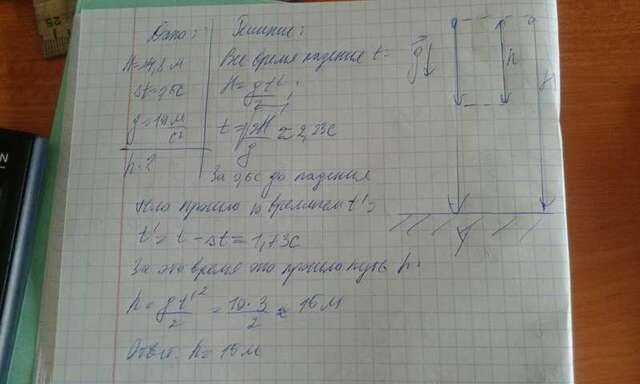 Дано:
H=24,8 м
Δt=0,6с
g=10 м/с²
h-?
Решение:
Все время падения t-
H=gt²/2;
t=√2H/g≈2,23с
За 0,6с до падения
тела прошло со временем t'=
t'=t-Δt=1,73с
За это время оно прошло путь h:
h=gt'²/2=10·3/2≈15м
Ответ: h=15м
g
h
H
25
N